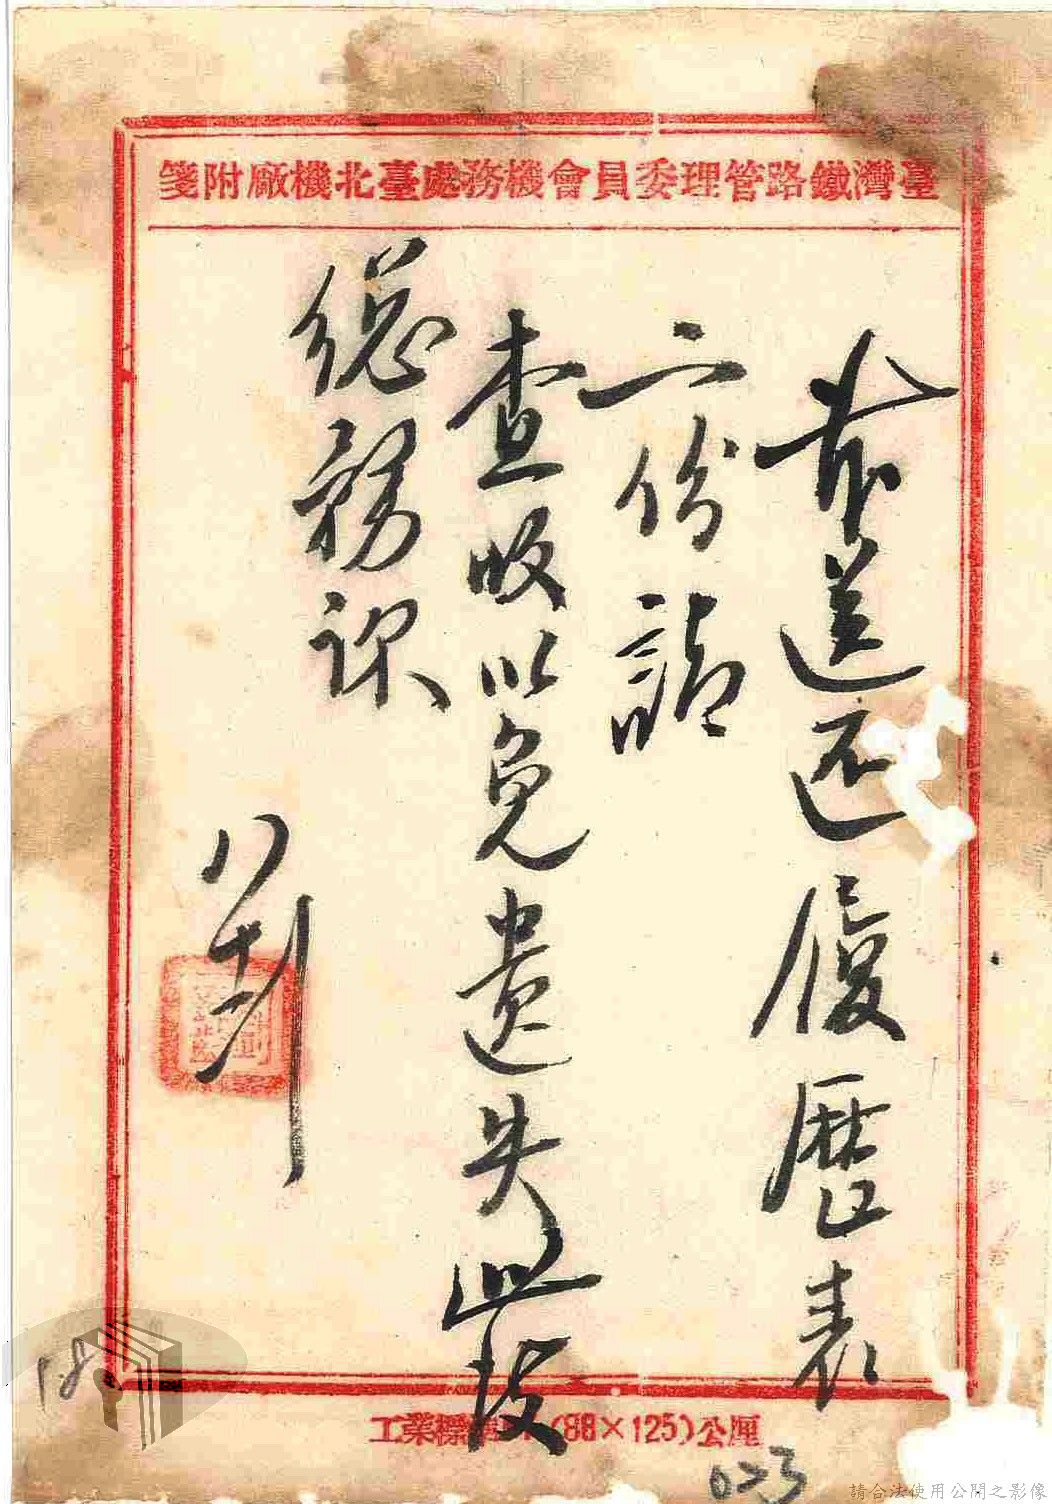 臺灣鐵路管理委員會機務處臺北機廠附箋
茲送还履歷表
二份請
查收以免遺失此致
總務課
八、十二
工業標準 (88×125)公厘
18
023
請合法使用公開之影像